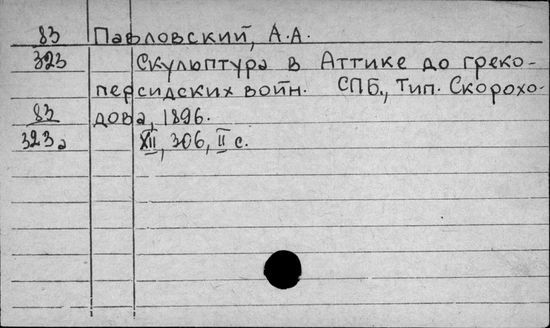 83 Павловский, А.А.
323 Скульптура в Аттике до греко-
персидских войн. СПб., Тип. Скорохо-
83 дова, 1896.
323а XII, 306, II с.